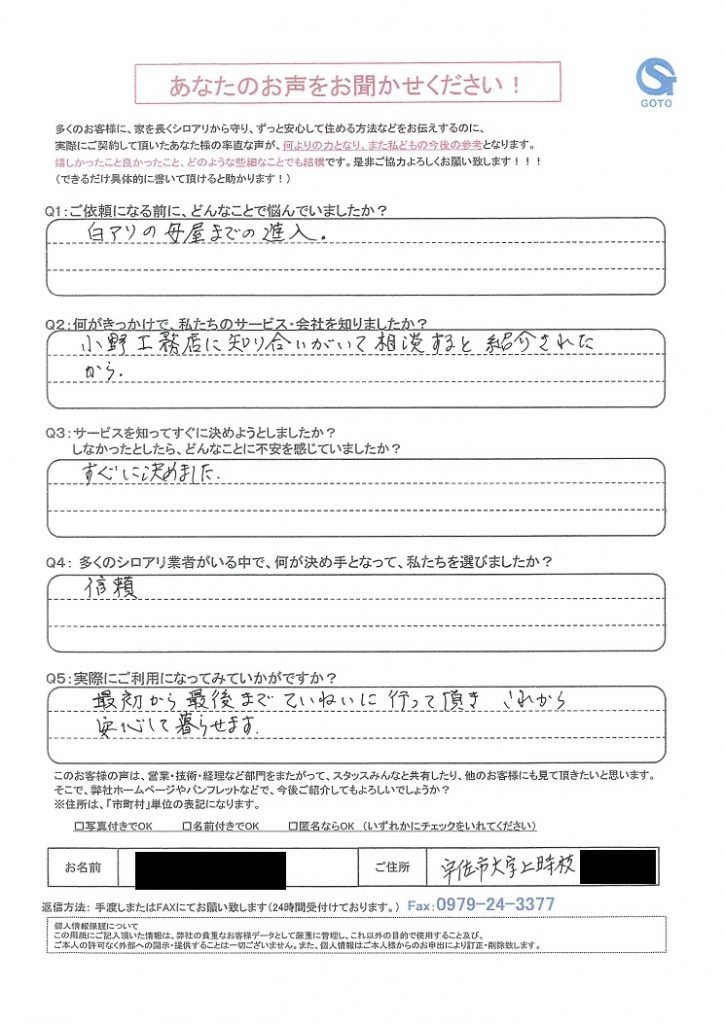 あなたのお声をお聞かせください！
GOTO
多くのお客様に、家を長くシロアリから守り、ずっと安心して住める方法などをお伝えするのに、
実際にご契約して頂いたあなた様の率直な声が、何よりの力となり、また私どもの今後の参考となります。
嬉しかったこと良かったこと、どのような些細なことでも結構です。是非ご協力よろしくお願い致します！！！
（できるだけ具体的に書いて頂けると助かります！）
Q1：ご依頼になる前に、どんなことで悩んでいましたか？
白アリの母屋までの進入.
Q2：何がきっかけで、私たちのサービス・会社を知りましたか？
小野工務店に知り合いがいて相談すると紹介された
から.
Q3：サービスを知ってすぐに決めようとしましたか？
しなかったとしたら、どんなことに不安を感じていましたか？
すぐに決めました.
Q4： 多くのシロアリ業者がいる中で、何が決め手となって、私たちを選びましたか？
信頼
Q5：実際にご利用になってみていかがですか？
最初から最後までていねいに行って頂き これから
安心して暮らせます.
このお客様の声は、営業・技術・経理など部門をまたがって、スタッスみんなと共有したり、他のお客様にも見て頂きたいと思います。
そこで、弊社ホームページやパンフレットなどで、今後ご紹介してもよろしいでしょうか？
※住所は、「市町村」単位の表記になります。
□写真付きでOK □名前付きでOK □匿名ならOK （いずれかにチェックをいれてください）
お名前 ご住所 宇佐市大字上時枝
返信方法： 手渡しまたはFAXにてお願い致します（24時間受付けております。） Fax：0979-24-3377
個人情報保護について
この用紙にご記入頂いた情報は、弊社の貴重なお客様データとして厳重に管理し、これ以外の目的で使用すること及び、
ご本人の許可なく外部への開示・提供することは一切ございません。また、個人情報はご本人様からのお申出により訂正・削除致します。